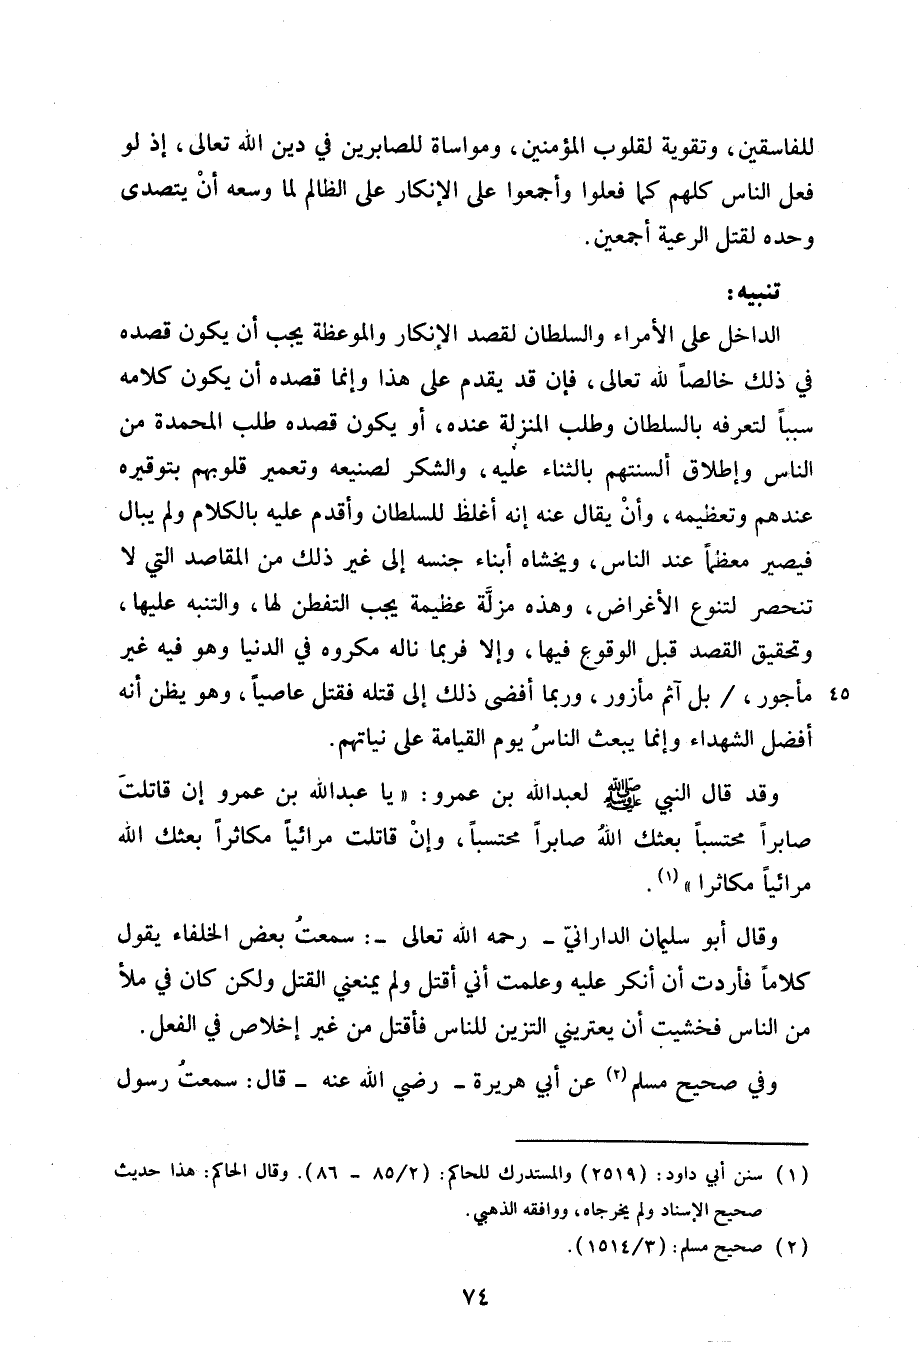 للفاسقين، وتقوية لقلوب المؤمنين، ومواساة للصابرين في دين الله تعالى، إذ لو
فعل الناس كلهم كما فعلوا وأجمعوا على الإنكار على الظالم لما وسعه أنْ يتصدى
وحده لقتل الرعية أجمعين.
تنبيه:
الداخل على الأمراء والسلطان لقصد الإنكار والموعظة يجب أن يكون قصده
في ذلك خالصاً لله تعالى، فإن قد يقدم على هذا وإنما قصده أن يكون كلامه
سبباً لتعرفه بالسلطان وطلب المنزلة عنده، أو يكون قصده طلب المحمدة من
الناس وإطلاق ألسنتهم بالثناء عليه، والشكر لصنيعه وتعمير قلوبهم بتوقيره
عندهم وتعظيمه، وأنْ يقال عنه إنه أغلظ للسلطان وأقدم عليه بالكلام ولم يبال
فيصير معظماً عند الناس، ويخشاه أبناء جنسه إلى غير ذلك من المقاصد التي لا
تنحصر لتنوع الأغراض، وهذه مزلَّة عظيمة يجب التفطن لها، والتنبه عليها،
وتحقيق القصد قبل الوقوع فيها، وإلا فربما ناله مكروه في الدنيا وهو فيه غير
٤٥ مأجور، / بل آثم مأزور، وربما أفضى ذلك إلى قتله فقتل عاصياً، وهو يظن أنه
أفضل الشهداء وإنما يبعث الناسُ يوم القيامة على نياتهم.
وقد قال النبي ﷺ لعبدالله بن عمرو: «يا عبدالله بن عمرو إن قاتلتَ
صابراً محتسباً بعثك اللهُ صابراً محتسباً، وإنْ قاتلت مرائياً مكاثراً بعثك الله
مرائياً مكاثرا»(١).
وقال أبو سليمان الدارانيّ ـ رحمه الله تعالى ـ: سمعتُ بعض الخلفاء يقول
كلاماً فأردت أن أنكر عليه وعلمت أني أقتل ولم يمنعني القتل ولكن كان في ملأ
من الناس فخشيت أن يعتريني التزين للناس فأقتل من غير إخلاص في الفعل.
وفي صحيح مسلم(٢) عن أبي هريرة ـ رضي الله عنه ـ قال: سمعتُ رسول
(١) سنن أبي داود: (٢٥١٩) والمستدرك للحاكم: (٨٥/٢ ـ ٨٦). وقال الحاكم: هذا حديث
صحيح الإسناد ولم يخرجاه، ووافقه الذهبي.
(٢) صحيح مسلم: (١٥١٤/٣).
٧٤